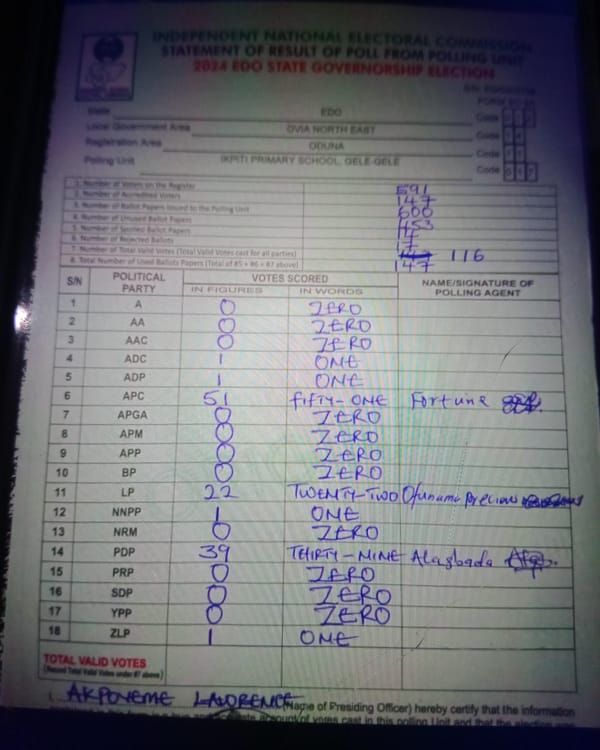 INDEPENDENT NATIONAL ELECTORAL COMMISSION
STATEMENT OF RESULT OF POLL FROM POLLING UNIT
2024 EDO STATE GOVERNORSHIP ELECTION
State EDO Code
Local Government Area OVIA NORTH EAST Code
Registration Area ODUNA Code
Polling Unit IKPITI PRIMARY SCHOOL, GELE-GELE Code
1. Number of Voters on the Register 591
2. Number of Accredited Voters 147
3. Number of Ballot Papers Issued to the Polling Unit 600
4. Number of Unused Ballot Papers 453
5. Number of Spoiled Ballot Papers
6. Number of Rejected Ballots
7. Number of Total Valid Votes (Total Valid Votes cast for all parties) 116
8. Total Number of Used Ballots Papers (Total of #5 + #6 + #7 above) 147
S/N POLITICAL PARTY VOTES SCORED NAME/SIGNATURE OF POLLING AGENT
IN FIGURES IN WORDS
1 A 0 ZERO
2 AA 0 ZERO
3 AAC 0 ZERO
4 ADC 1 ONE
5 ADP 1 ONE
6 APC 51 FIFTY-ONE Fortune
7 APGA 0 ZERO
8 APM 0 ZERO
9 APP 0 ZERO
10 BP 0 ZERO
11 LP 22 TWENTY-TWO Precious
12 NNPP 1 ONE
13 NRM 0 ZERO
14 PDP 39 THIRTY-NINE Alagbada
15 PRP 0 ZERO
16 SDP 0 ZERO
17 YPP 0 ZERO
18 ZLP 1 ONE
TOTAL VALID VOTES
(Record Total Valid Votes under #7 above)
I, AKPOVEME LAWRENCE (Name of Presiding Officer) hereby certify that the information
account of votes cast in this polling Unit and that the election